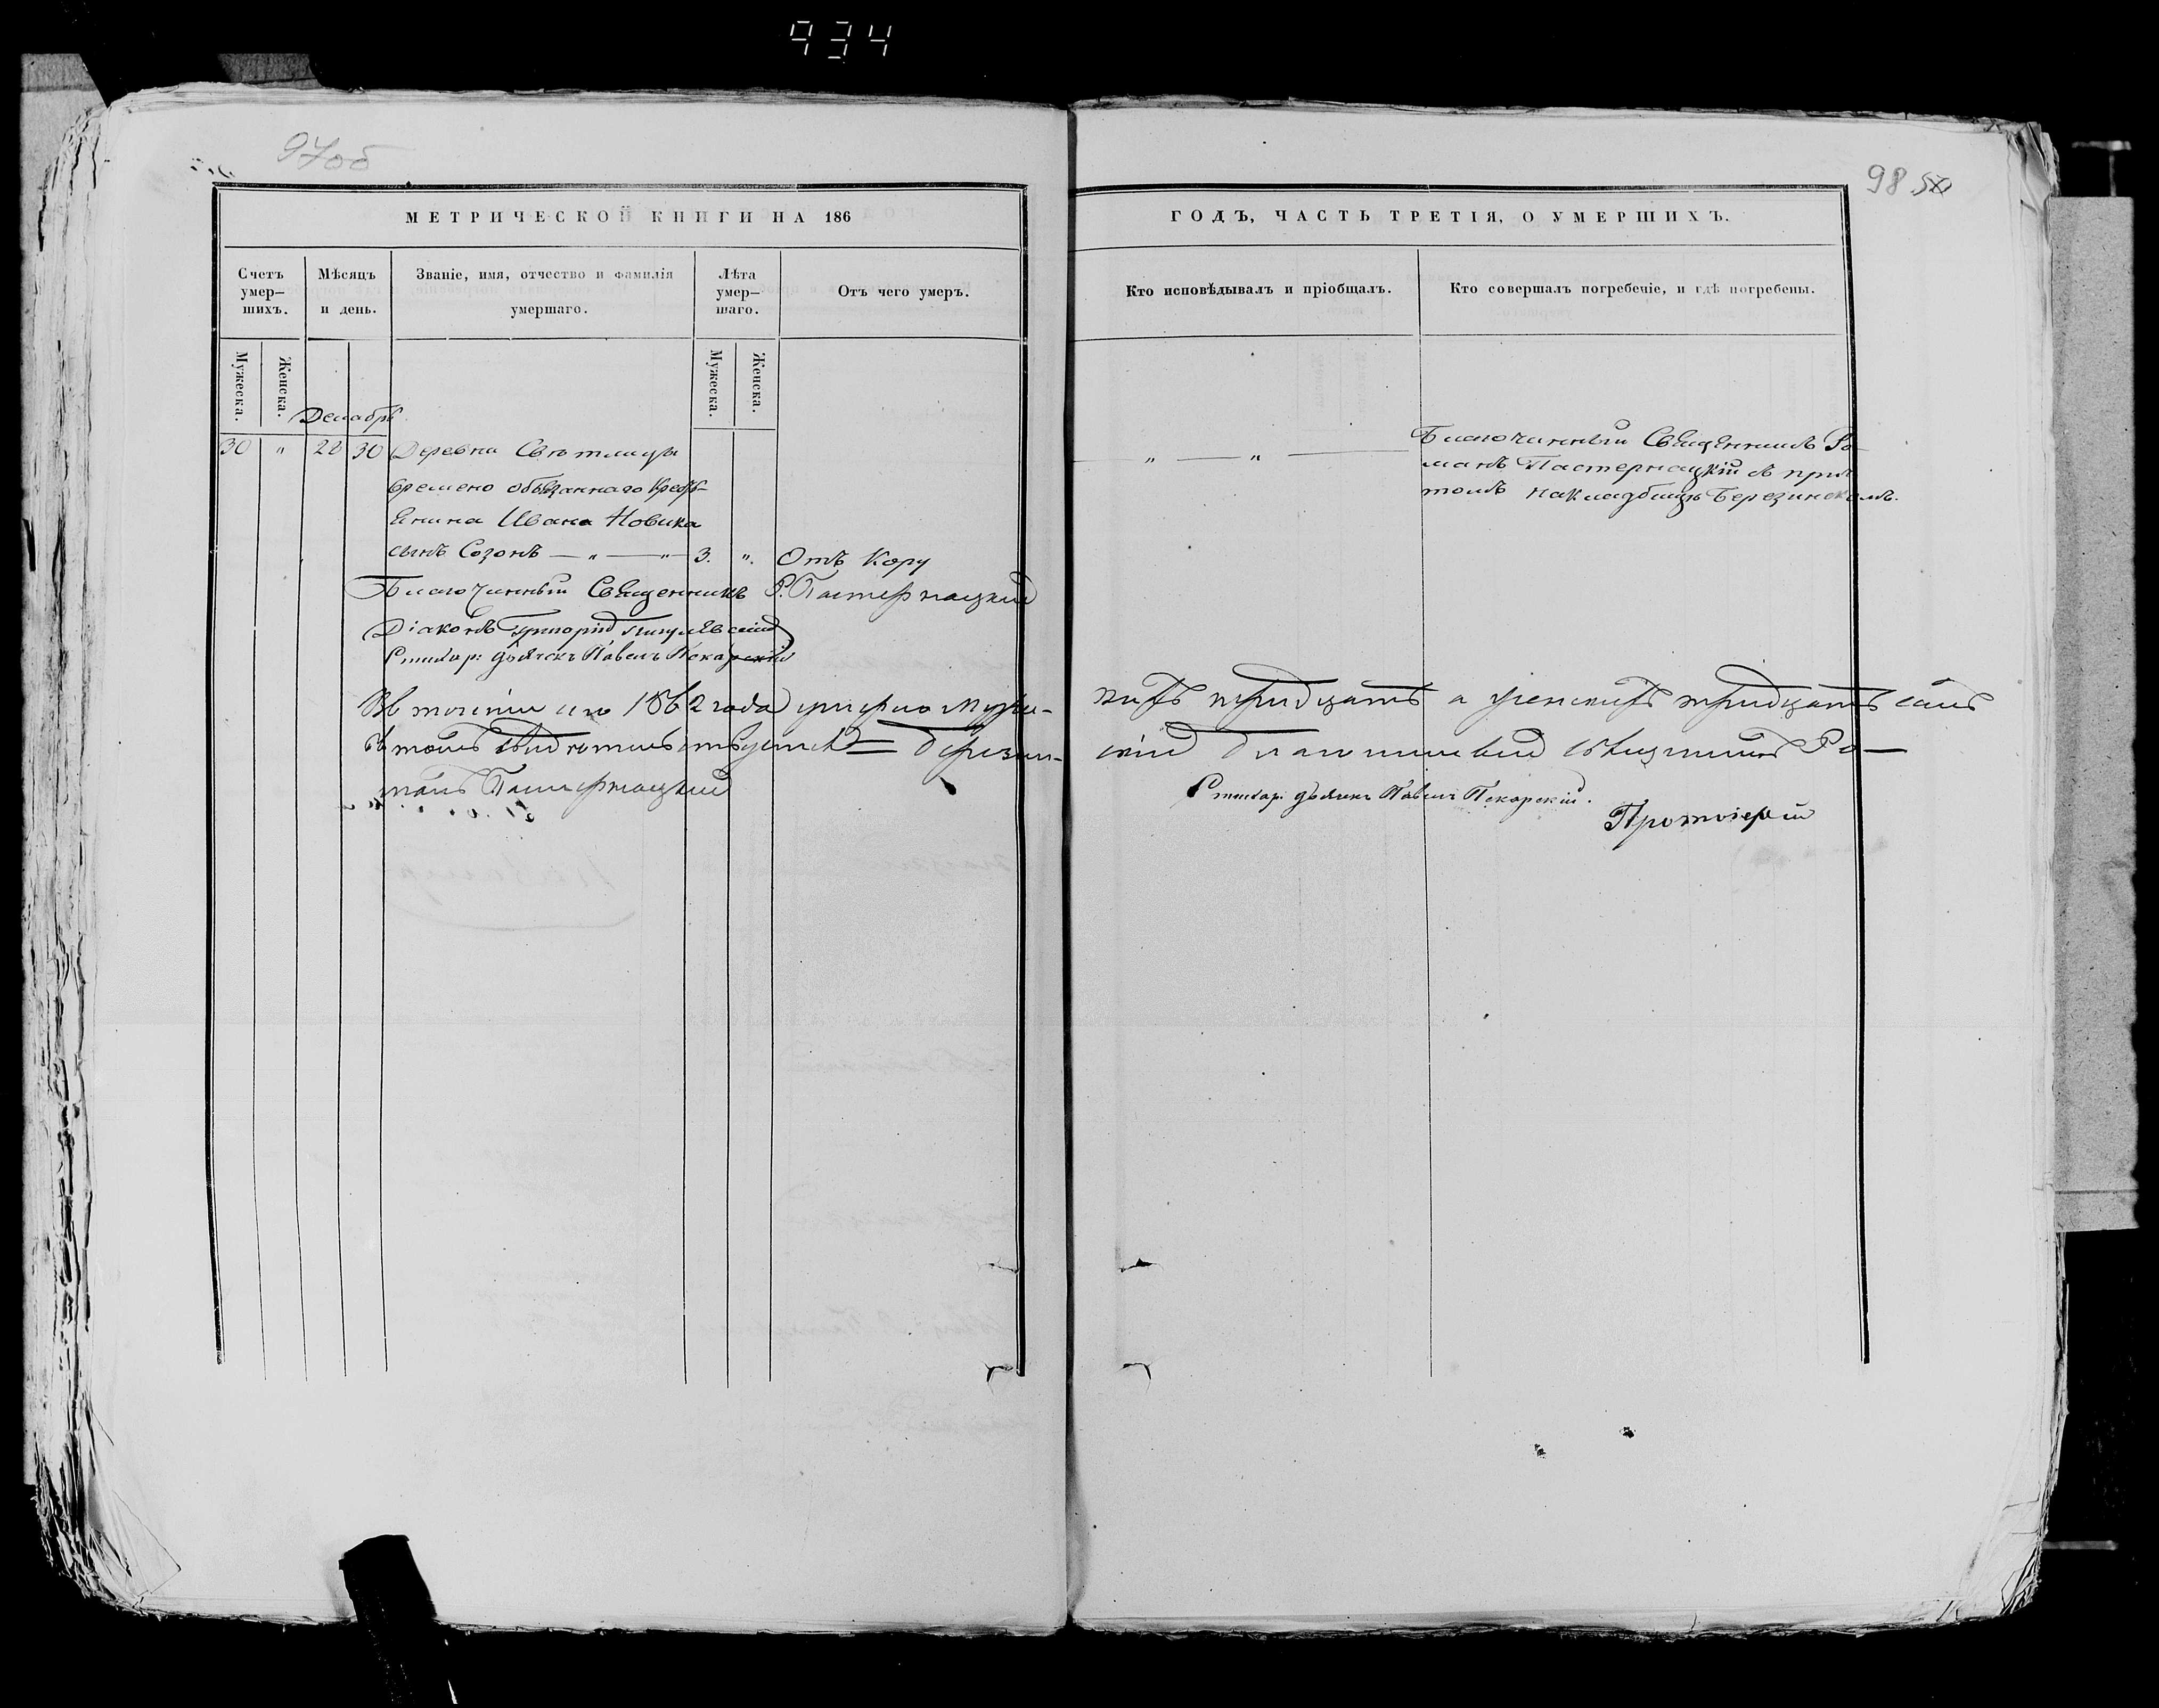 934
97об
98
МЕТРИЧЕСКОЙ КНИГИ НА 186
ГОДЪ, ЧАСТЬ ТРЕТІЯ, О УМЕРШИХЪ.
Счетъ умер–шихъ.
Мѣсяцъ и день.
Званіе, имя, отчество и фамилія умершаго.
Лѣта умер–шаго.
Отъ чего умеръ.
Кто исповѣдывалъ и пріобщалъ.
Кто совершалъ погребеніе, и гдѣ погребены.
Мужеска.
Женска.
Мужеска.
Женска.
Декабрь
30 " 28 30 Деревни Свѣтлицы
времено обязаннаго Крестъ-
янина Ивана Новика
сынъ Созонъ — " — " — 3. ". Отъ Кору
" — " —
Благочинный Священникъ Ро-
манъ Пастернацкій съ прич
томъ на кладбищѣ Березинскомъ.
Благочинный Священникъ Р. Пастернацкій
Діаконъ Григорій
дьячекъ Павелъ Пекарскій
Въ теченіи сего 1862 года умерло муже-
скихъ тридцать а женскихъ тридцать семь
въ томъ свидѣтельствуетъ Березин-
скій благочинный священникъ Ро-
манъ Пастернацкій
дьячекъ Павелъ Пекарскій.
Протоіерей